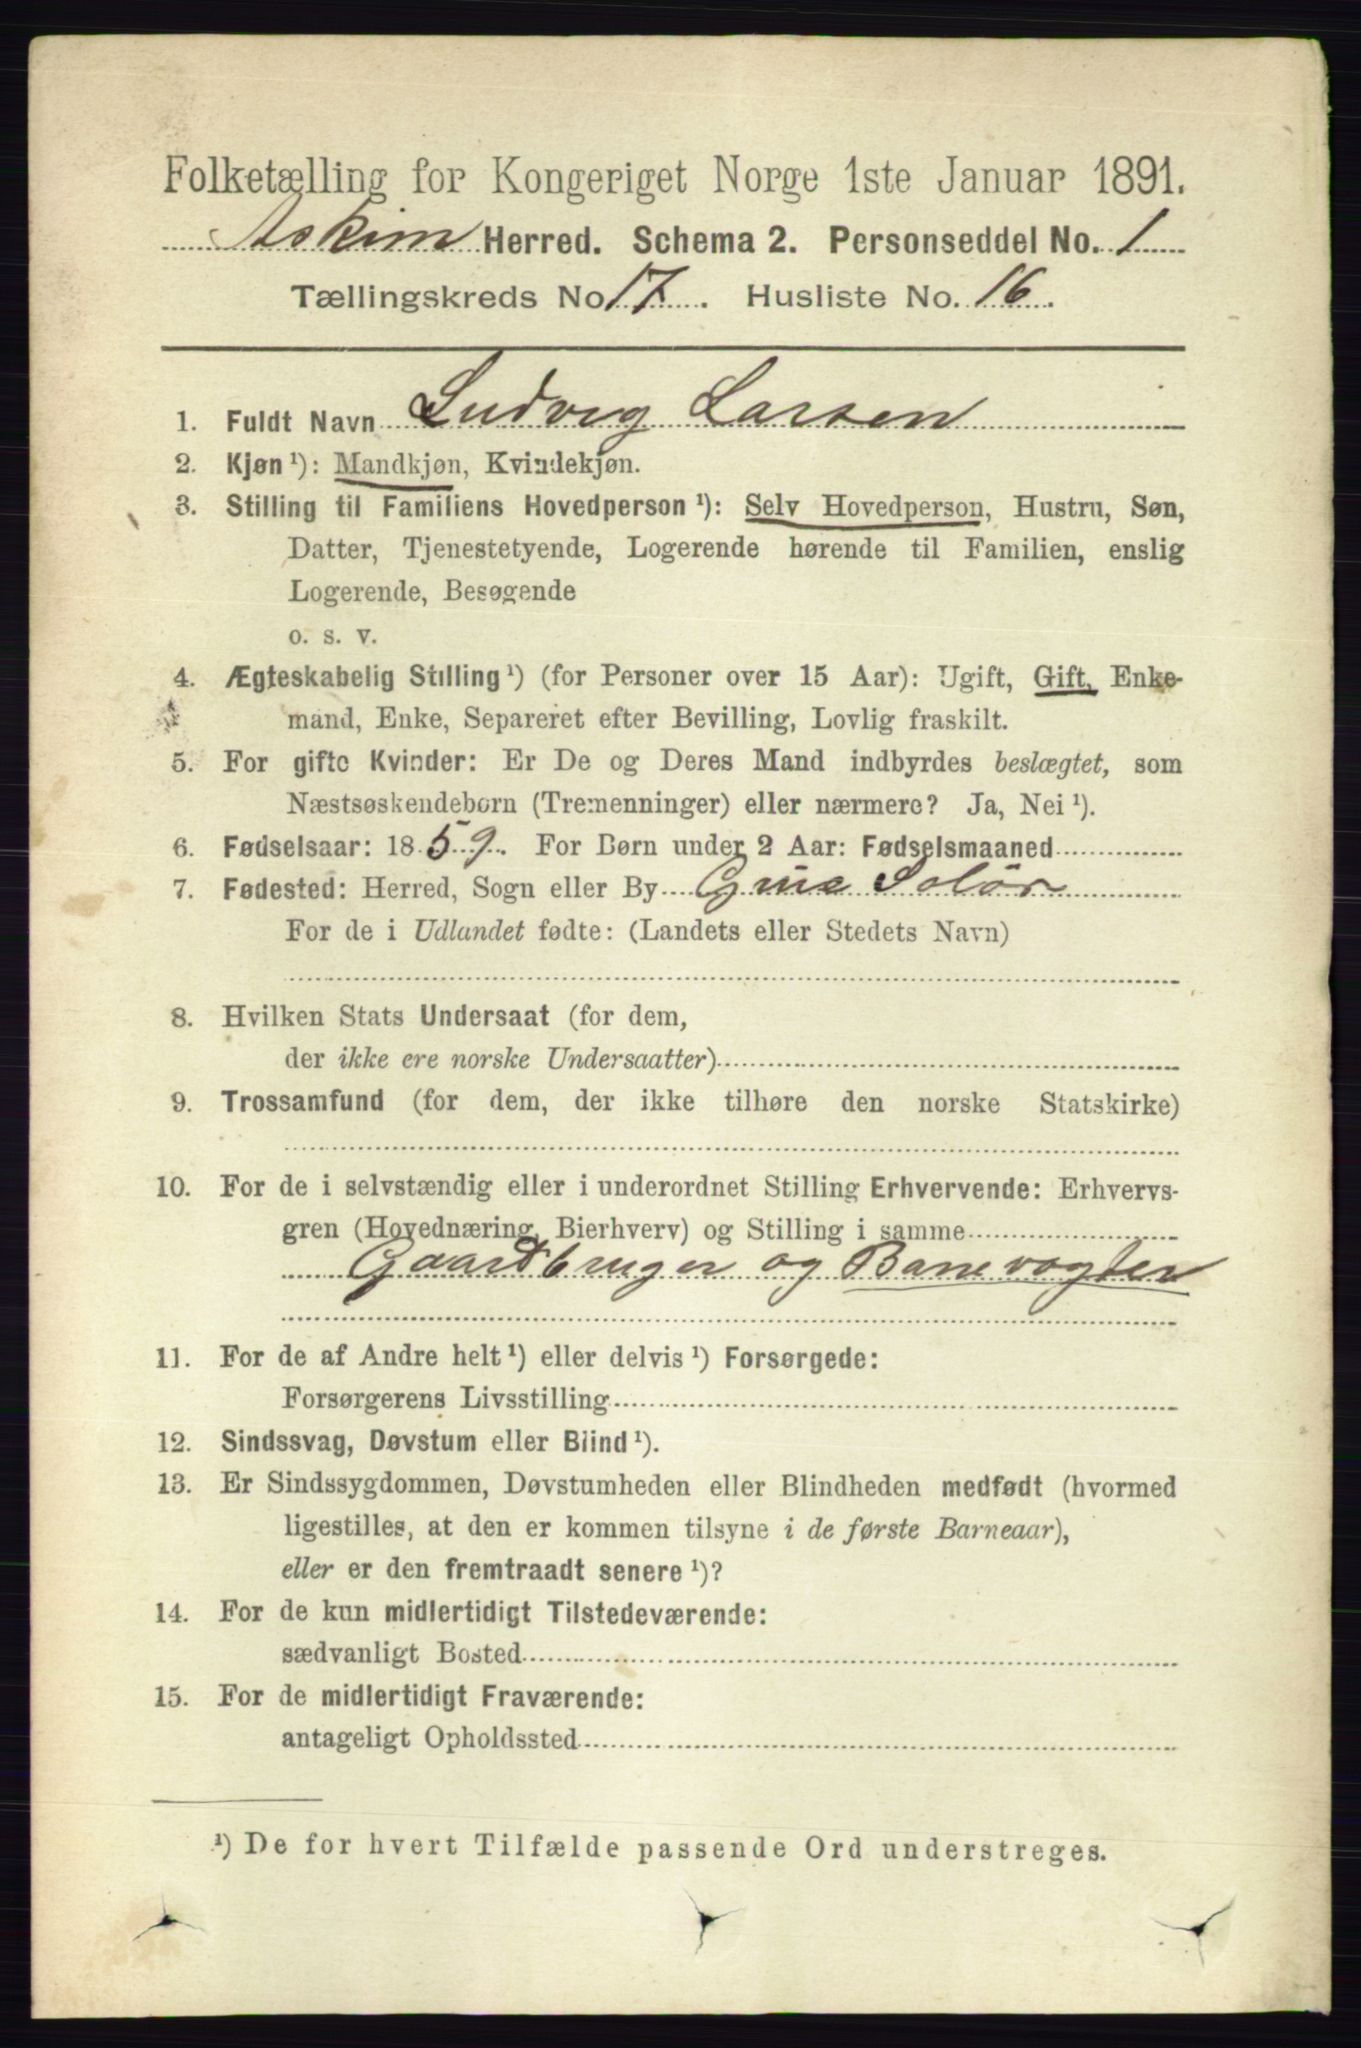 Folketælling for Kongeriget Norge 1ste Januar 1891.
Askim Herred. Schema 2. Personseddel No. 1
Tællingskreds No 17. Husliste No. 16.
1. Fuldt Navn Ludvig Larsen
2. Kjøn ¹): Mandkjøn, Kvindekjøn.
3. Stilling til Familiens Hovedperson ¹): Selv Hovedperson, Hustru, Søn,
Datter, Tjenestetyende, Logerende hørende til Familien, enslig
Logerende, Besøgende
o. s. v.
4. Ægteskabelig Stilling ¹) (for Personer over 15 Aar): Ugift, Gift, Enke-
mand, Enke, Separeret efter Bevilling, Lovlig fraskilt.
5. For gifte Kvinder: Er De og Deres Mand indbyrdes beslægtet, som
Næstsøskendebørn (Tremenninger) eller nærmere? Ja, Nei ¹).
6. Fødselsaar: 1859. For Børn under 2 Aar: Fødselsmaaned
7. Fødested: Herred, Sogn eller By Grue Solør
For de i Udlandet fødte: (Landets eller Stedets Navn)
8. Hvilken Stats Undersaat (for dem,
der ikke ere norske Undersaatter)
9. Trossamfund (for dem, der ikke tilhøre den norske Statskirke)
10. For de i selvstændig eller i underordnet Stilling Erhvervende: Erhvervs-
gren (Hovednæring, Bierhverv) og Stilling i samme
Gaardbruger og Banevogter
11. For de af Andre helt ¹) eller delvis ¹) Forsørgede:
Forsørgerens Livsstilling
12. Sindssvag, Døvstum eller Blind ¹).
13. Er Sindssygdommen, Døvstumheden eller Blindheden medfødt (hvormed
ligestilles, at den er kommen tilsyne i de første Barneaar),
eller er den fremtraadt senere ¹)?
14. For de kun midlertidigt Tilstedeværende:
sædvanligt Bosted
15. For de midlertidigt Fraværende:
antageligt Opholdssted
¹) De for hvert Tilfælde passende Ord understreges.